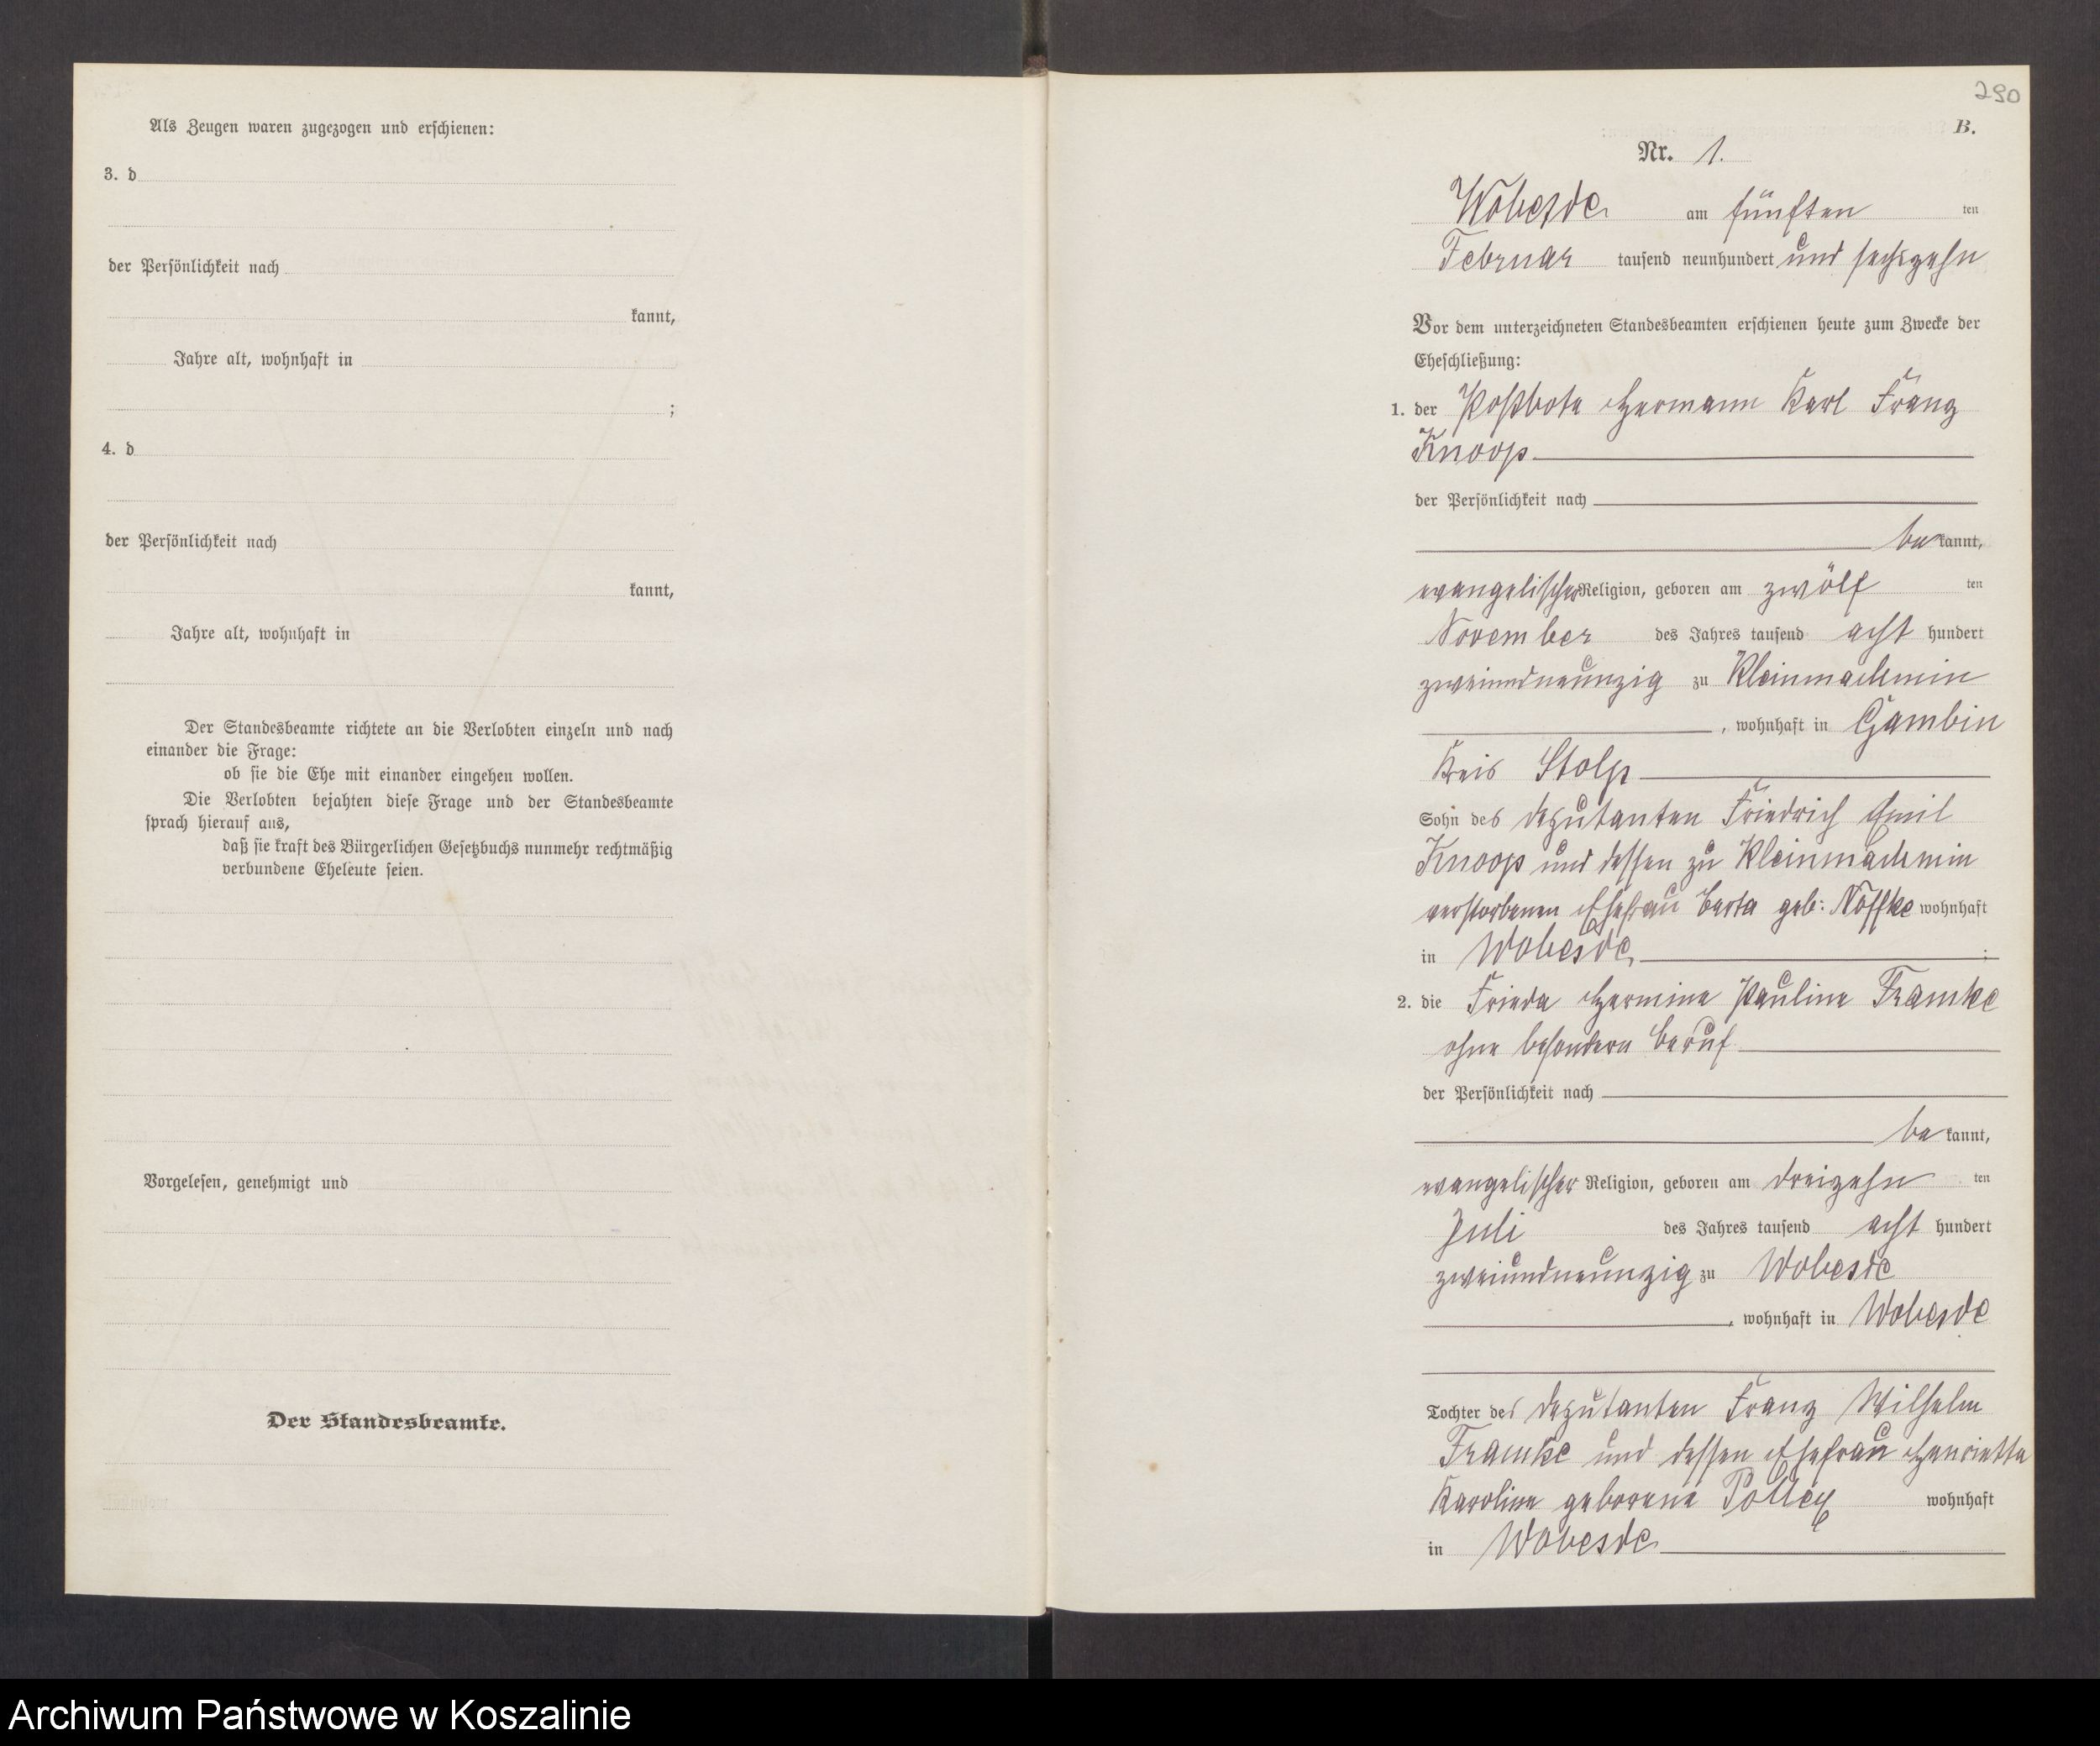 Als Zeugen waren zugezogen und erschienen:
3. d
der Persönlichkeit nach
kannt,
Jahre alt, wohnhaft in
;
4. d
der Persönlichkeit nach
kannt,
Jahre alt, wohnhaft in
Der Standesbeamte richtete an die Verlobten einzeln und nach
einander die Frage:
ob sie die Ehe mit einander eingehen wollen.
Die Verlobten bejahten diese Frage und der Standesbeamte
sprach hierauf aus,
daß sie kraft des Bürgerlichen Gesetzbuchs nunmehr rechtmäßig
verbundene Eheleute seien.
Vorgelesen, genehmigt und
Der Standesbeamte.
290
B.
Nr. 1.
Wobesde am fünften ten
Februar tausend neunhundert und sechszehn
Vor dem unterzeichneten Standesbeamten erschienen heute zum Zwecke der
Eheschließung:
1. der Postbote Hermann Karl Franz
Knoop
der Persönlichkeit nach
be kannt,
evangelischer Religion, geboren am zwölf ten
November des Jahres tausend acht hundert
zweiundneunzig zu Kleinmachmin
, wohnhaft in Gambin
Kreis Stolp
Sohn des Deputanten Friedrich Emil
Knoop und dessen zu Kleinmachmin
verstorbenen Ehefrau Berta geb: Nöffke wohnhaft
in Wobesde ;
2. die Frieda Hermine Pauline Framke
ohne besondern Beruf
der Persönlichkeit nach
be kannt,
evangelischer Religion, geboren am dreizehn ten
Juli des Jahres tausend acht hundert
zweiundneunzig zu Wobesde
, wohnhaft in Wobesde
Tochter des Deputanten Franz Wilhelm
Framke und dessen Ehefrau Henriette
Karoline geborene Polley wohnhaft
in Wobesde
Archiwum Państwowe w Koszalinie